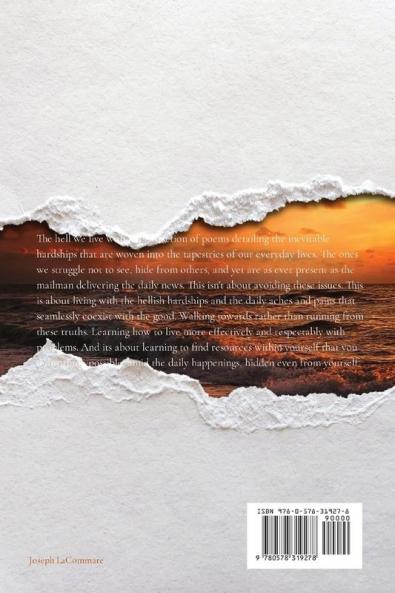 The hell we live w      ction of poems detailing the inevitable
hardships that are woven into the tapestries of our everyday lives. The ones
we struggle not to see, hide from others, and yet are as ever present as the
mailman delivering the daily news. This isn't about avoiding these issues. This
is about living with the hellish hardships and the daily aches and pains that
seamlessly coexist with the good. Walking towards rather than running from
these truths. Learning how to live more effectively and respectably with
problems. And its about learning to find resources within yourself that you
amid the daily happenings, hidden even from yourself.
ISBN 978-0-578-31927-8
90000
9 780578 319278
Joseph LaCommare